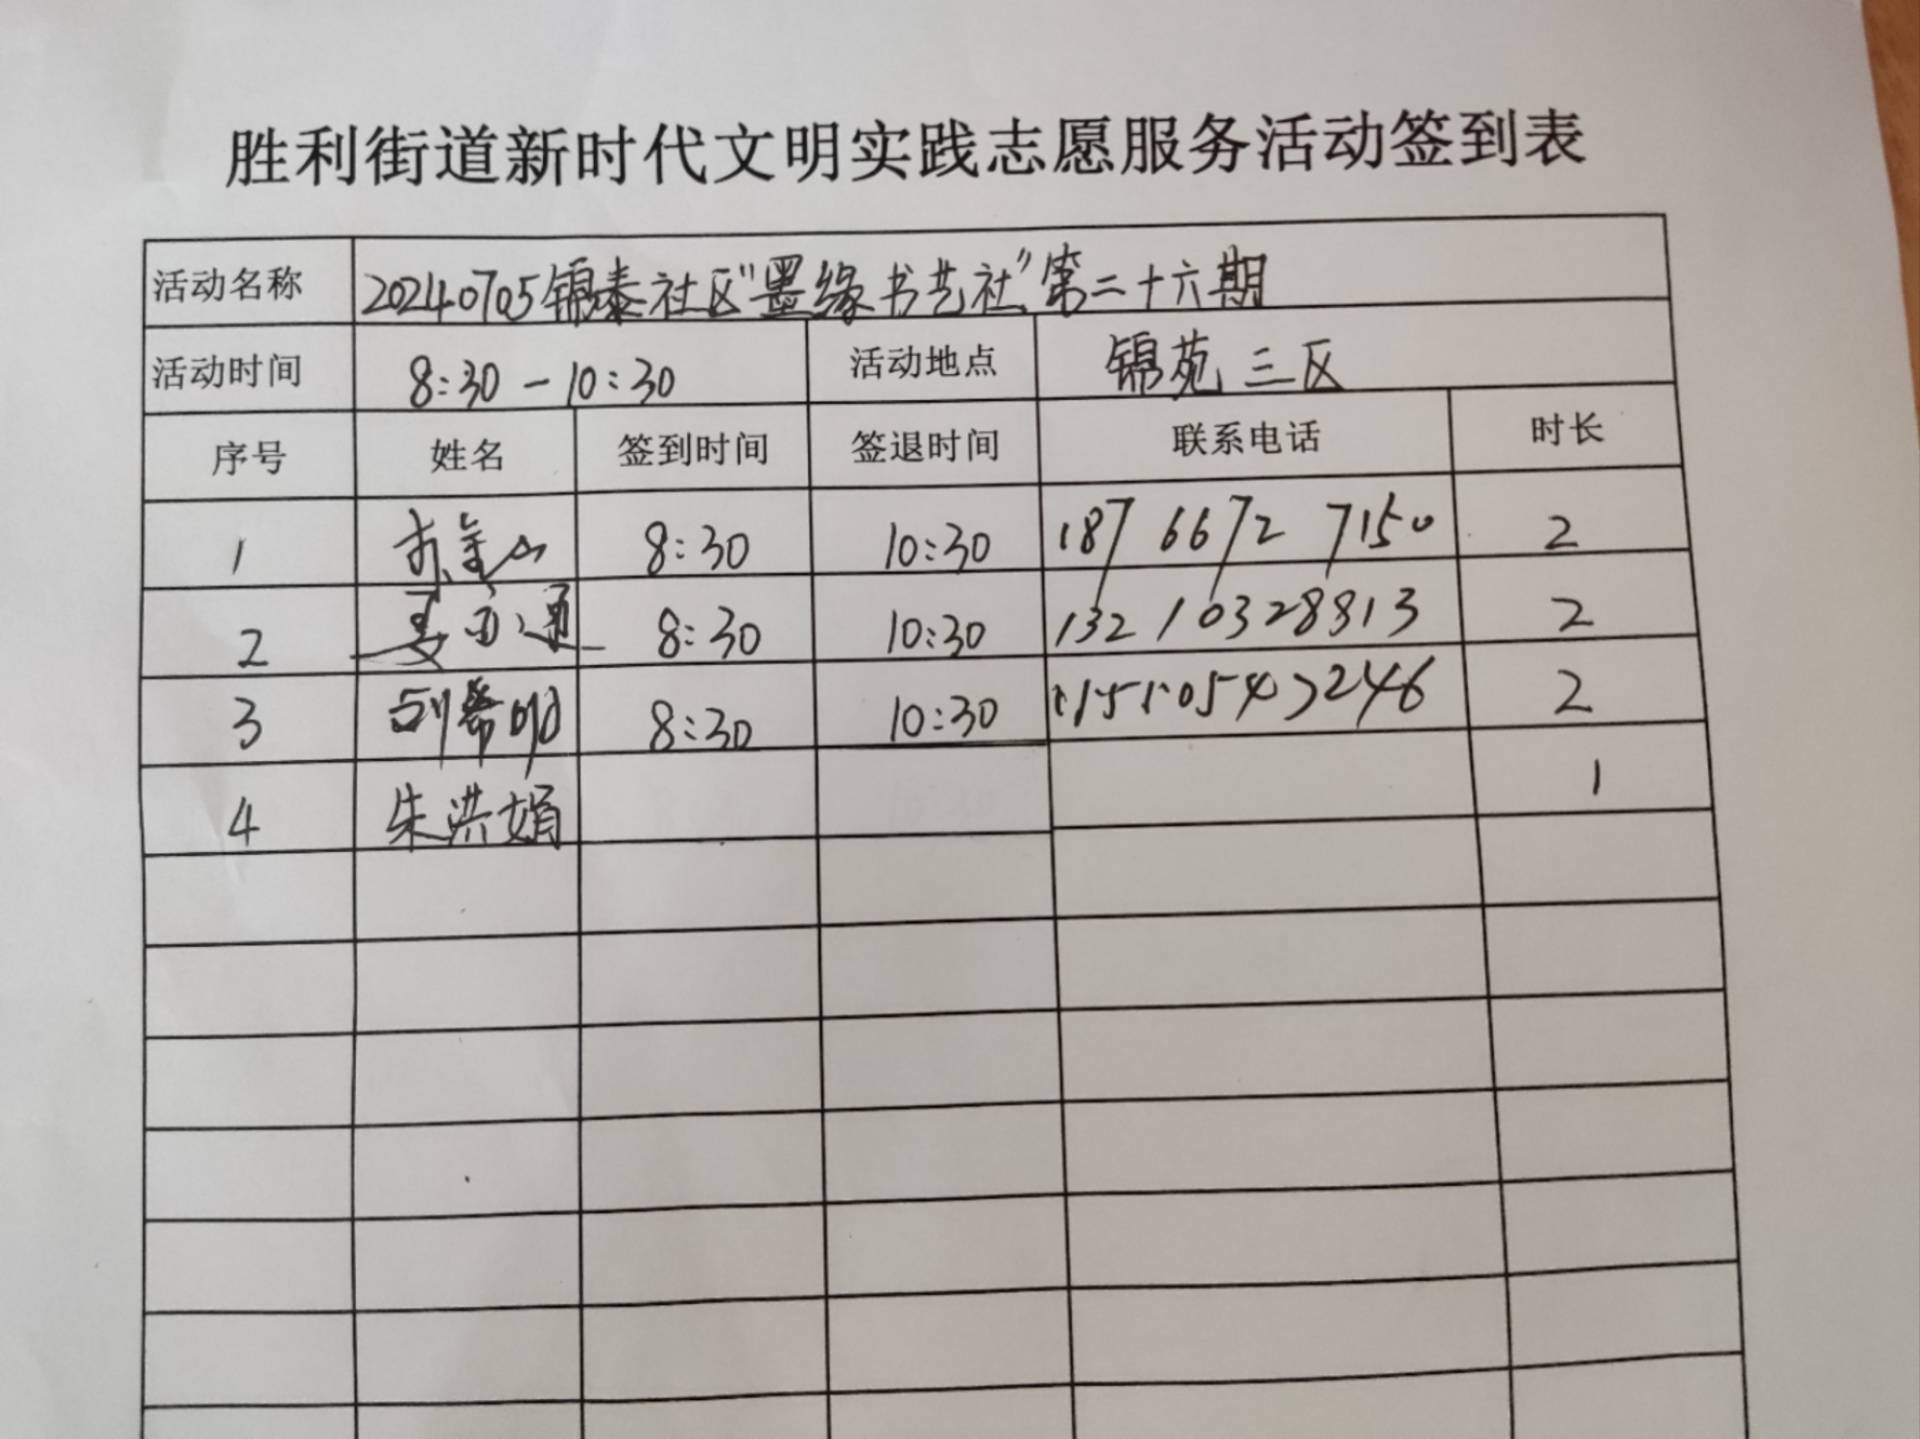 胜利街道新时代文明实践志愿服务活动签到表
活动名称 20240705锦泰社区"墨缘书艺社"第二十六期
活动时间 8:30-10:30 活动地点 锦苑三区
序号 姓名 签到时间 签退时间 联系电话 时长
1 8:30 10:30 187 6672 7150 2
2 8:30 10:30 132 10328813 2
3 8:30 10:30 2
4 朱洪娟 1